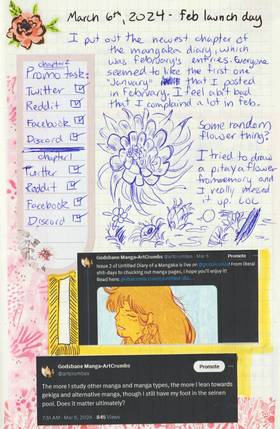 March 6th, 2024 - feb launch day
I put out the newest chapter of
the mangaka diary, which
was february's entries. Everyone
seemed to like the first one
"January" that I posted
in february. I feel abit bad
that I complained a lot in feb.
chapter 2
Promo task:
Twitter
Reddit
Facebook
Discord
chapter 1
Twitter
Reddit
Facebook
Discord
Some random
flower thing?
I tried to draw
a pitaya flower
from memory, and
I really messed
it up. LOL
Godsbane Manga-ArtCrumbs @artcrumbes · Mar 5
Promote
Issue 2 of Untitled Diary of a Mangaka is live on
From literal
shit-days to chucking out manga pages, i hope you'll enjoy it!
Read here:
Godsbane Manga-ArtCrumbs
@artcrumbes
Promote
The more I study other manga and manga types, the more I lean towards
gekiga and alternative manga, though I still have my foot in the seinen
pool. Does it matter ultimately?
7:51 AM · Mar 6, 2024 · 845 Views